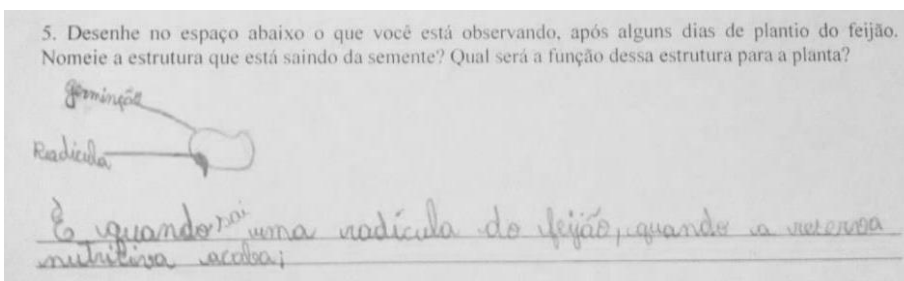 5. Desenhe no espaço abaixo o que você está observando, após alguns dias de plantio do feijão.
Nomeie a estrutura que está saindo da semente? Qual será a função dessa estrutura para a planta?
germinção
Radicula
É quando sai uma radícula do feijão, quando a reserva
nutritiva acaba;